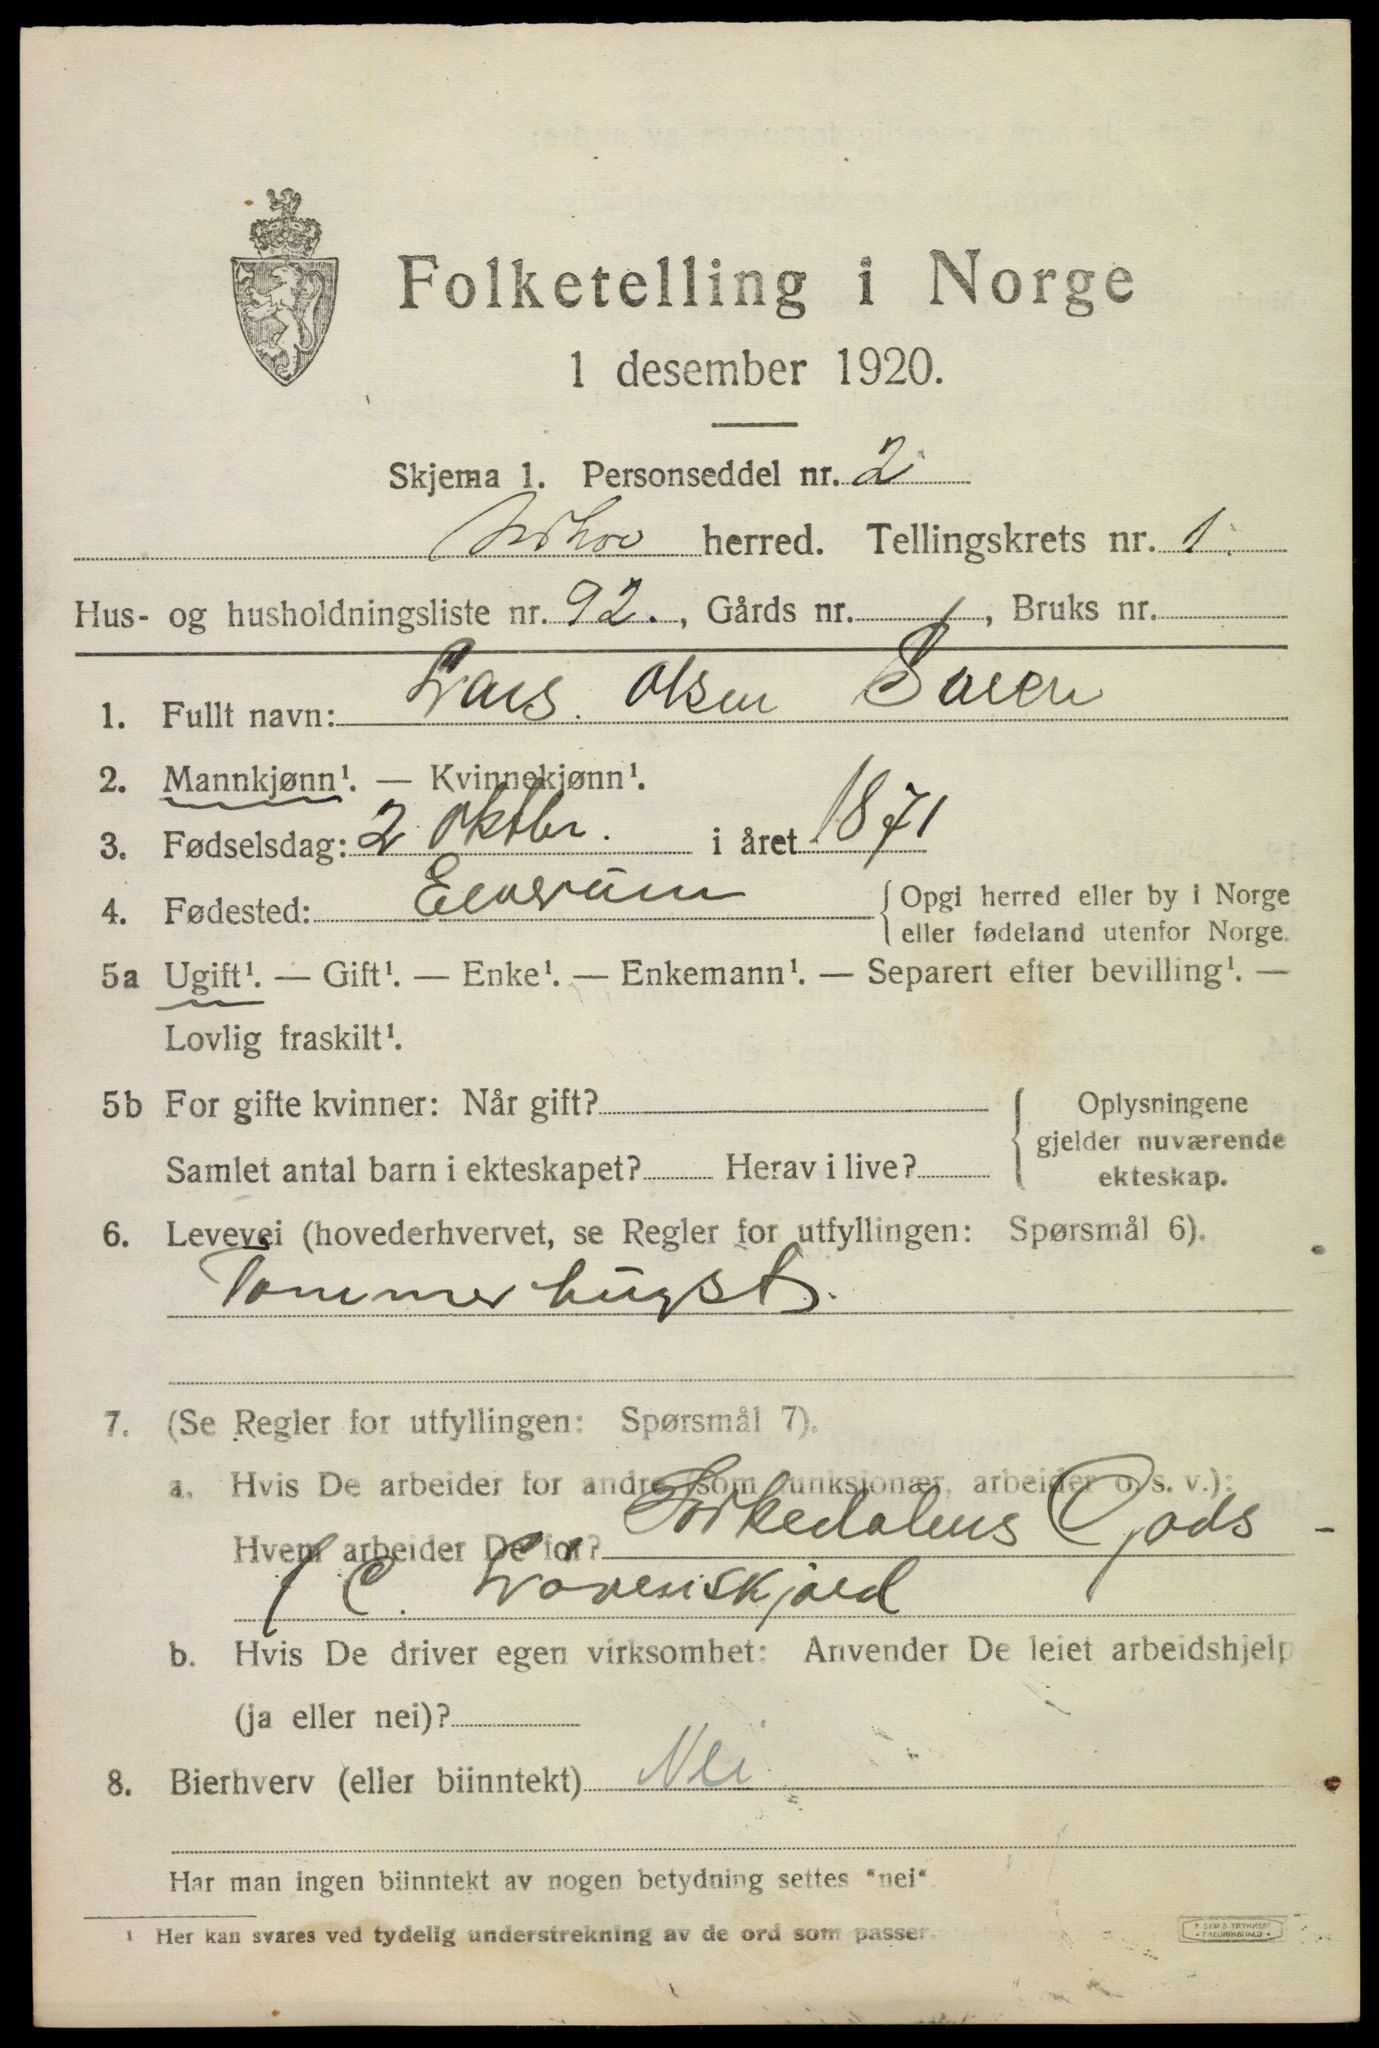 Folketelling i Norge
1 desember 1920.
Skjema 1. Personseddel nr. 2
herred. Tellingskrets nr. 1
Hus- og husholdningsliste nr. 92. , Gårds nr. , Bruks nr.
1. Fullt navn: Lars Olsen
2. Mannkjønn¹. — Kvinnekjønn¹.
3. Fødselsdag: 2 Oktbr. i året 1871
4. Fødested: Elverum { Opgi herred eller by i Norge
eller fødeland utenfor Norge.
5a Ugift¹. — Gift¹. — Enke¹. — Enkemann¹. — Separert efter bevilling¹. —
Lovlig fraskilt¹.
5b For gifte kvinner: Når gift? { Oplysningene
gjelder nuværende
Samlet antal barn i ekteskapet? Herav i live?
ekteskap.
6. Levevei (hovederhvervet, se Regler for utfyllingen: Spørsmål 6).
Tømmerhugst.
7. (Se Regler for utfyllingen: Spørsmål 7).
a. Hvis De arbeider for andre (som funksjonær, arbeider o. s. v.):
Hvem arbeider De for? Sørkedalens Gods -
Løvenskjold
b. Hvis De driver egen virksomhet: Anvender De leiet arbeidshjelp
(ja eller nei)?
8. Bierhverv (eller biinntekt) Nei
Har man ingen biinntekt av nogen betydning settes "nei"
¹ Her kan svares ved tydelig understrekning av de ord som passer.